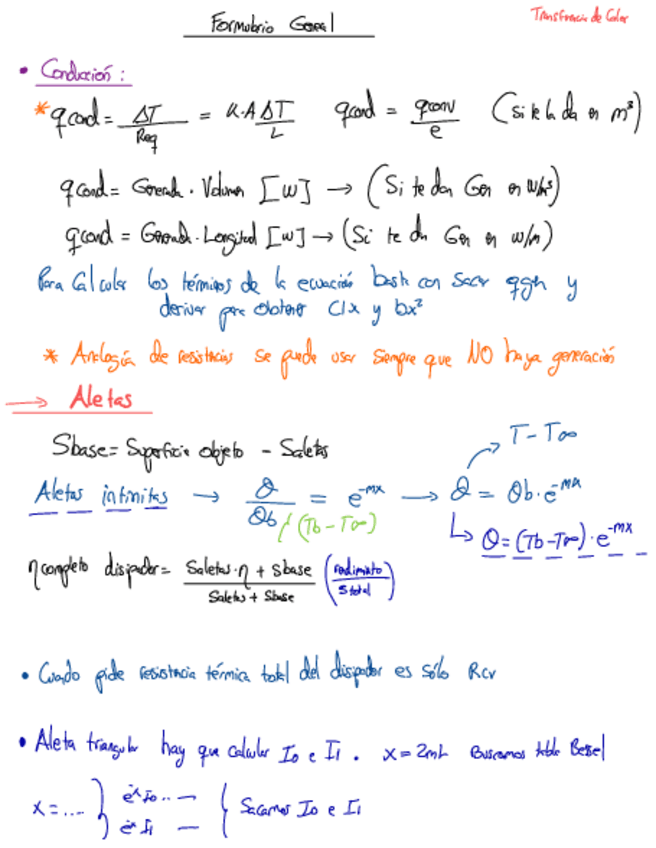 Formulario General
Transferencia de Calor
• Conducción:
* qcond = ΔT/Req = K·A ΔT/L qcond = qconv/e (Si te la da en m³)
qcond = Generada · Volumen [W] → (Si te dan Gen en W/m³)
qcond = Generada · Longitud [W] → (Si te dan Gen en W/m)
Para Calcular los términos de la ecuación basta con sacar qgen y
derivar para obtener C1x y bx²
* Analogía de resistencias se puede usar siempre que NO haya generación
→ Aletas
Sbase = Superficie objeto - Saletas
T - T∞
Aletas infinitas → θ/θb = e^-mx → θ = θb · e^-mx
(Tb - T∞)
↳ θ = (Tb - T∞) · e^-mx
η completo disipador = Saletas · η + Sbase / Saletas + Sbase (rendimiento / S total)
• Cuando pide resistencia térmica total del disipador es sólo Rcv
• Aleta triangular hay que calcular Io e I1. x = 2mL Buscamos tabla Bessel
x = .... } e^x Io .. — { Sacamos Io e I1
e^x I1 —